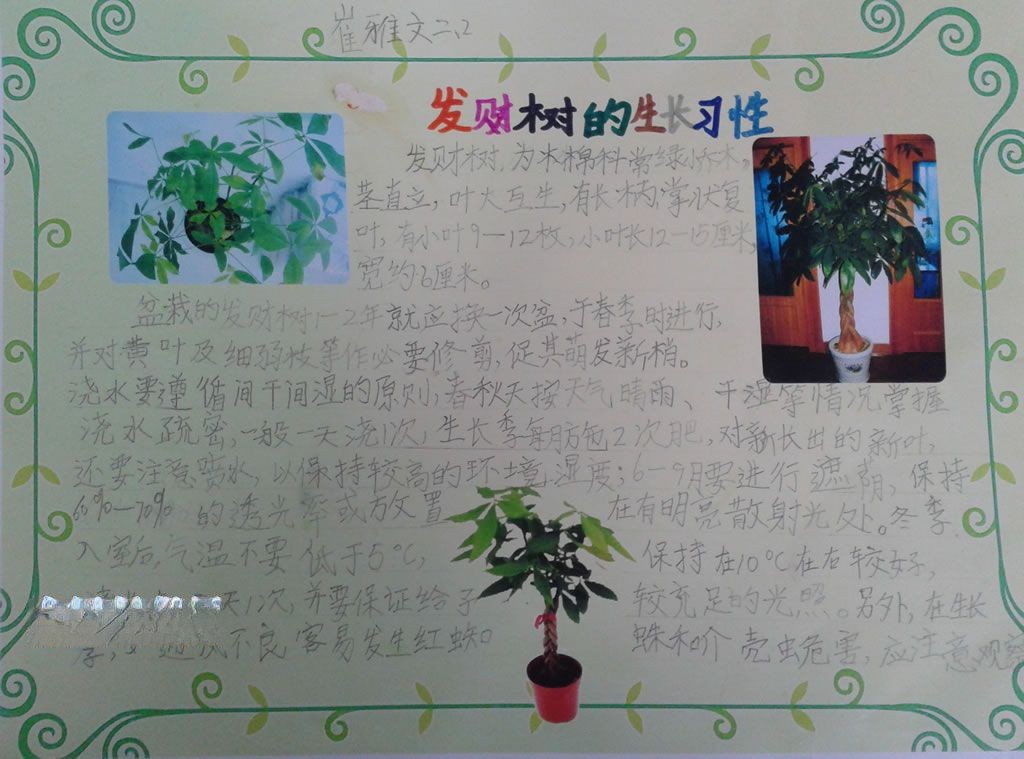 崔雅文二、2
发财树的生长习性
发财树，为木棉科常绿小乔木，
茎直立，叶大互生，有长柄，掌状复
叶，有小叶9—12枚，小叶长12—15厘米，
宽约6厘米。
盆栽的发财树1—2年就应换一次盆，于春季时进行，
并对黄叶及细弱枝等作必要修剪，促其萌发新梢。
浇水要遵循间干间湿的原则，春秋天按天气晴雨、干湿等情况掌握
浇水疏密，一般一天浇1次，生长季每月施2次肥，对新长出的新叶，
还要注意喷水，以保持较高的环境湿度；6—9月要进行遮荫，保持
60%—70%的透光率或放置在有明亮散射光处。冬季
入室后，气温不要低于5℃，保持在10℃在右较好，
天1次，并要保证给予较充足的光照。另外，在生长
不良容易发生红蜘蛛和介壳虫危害，应注意观察